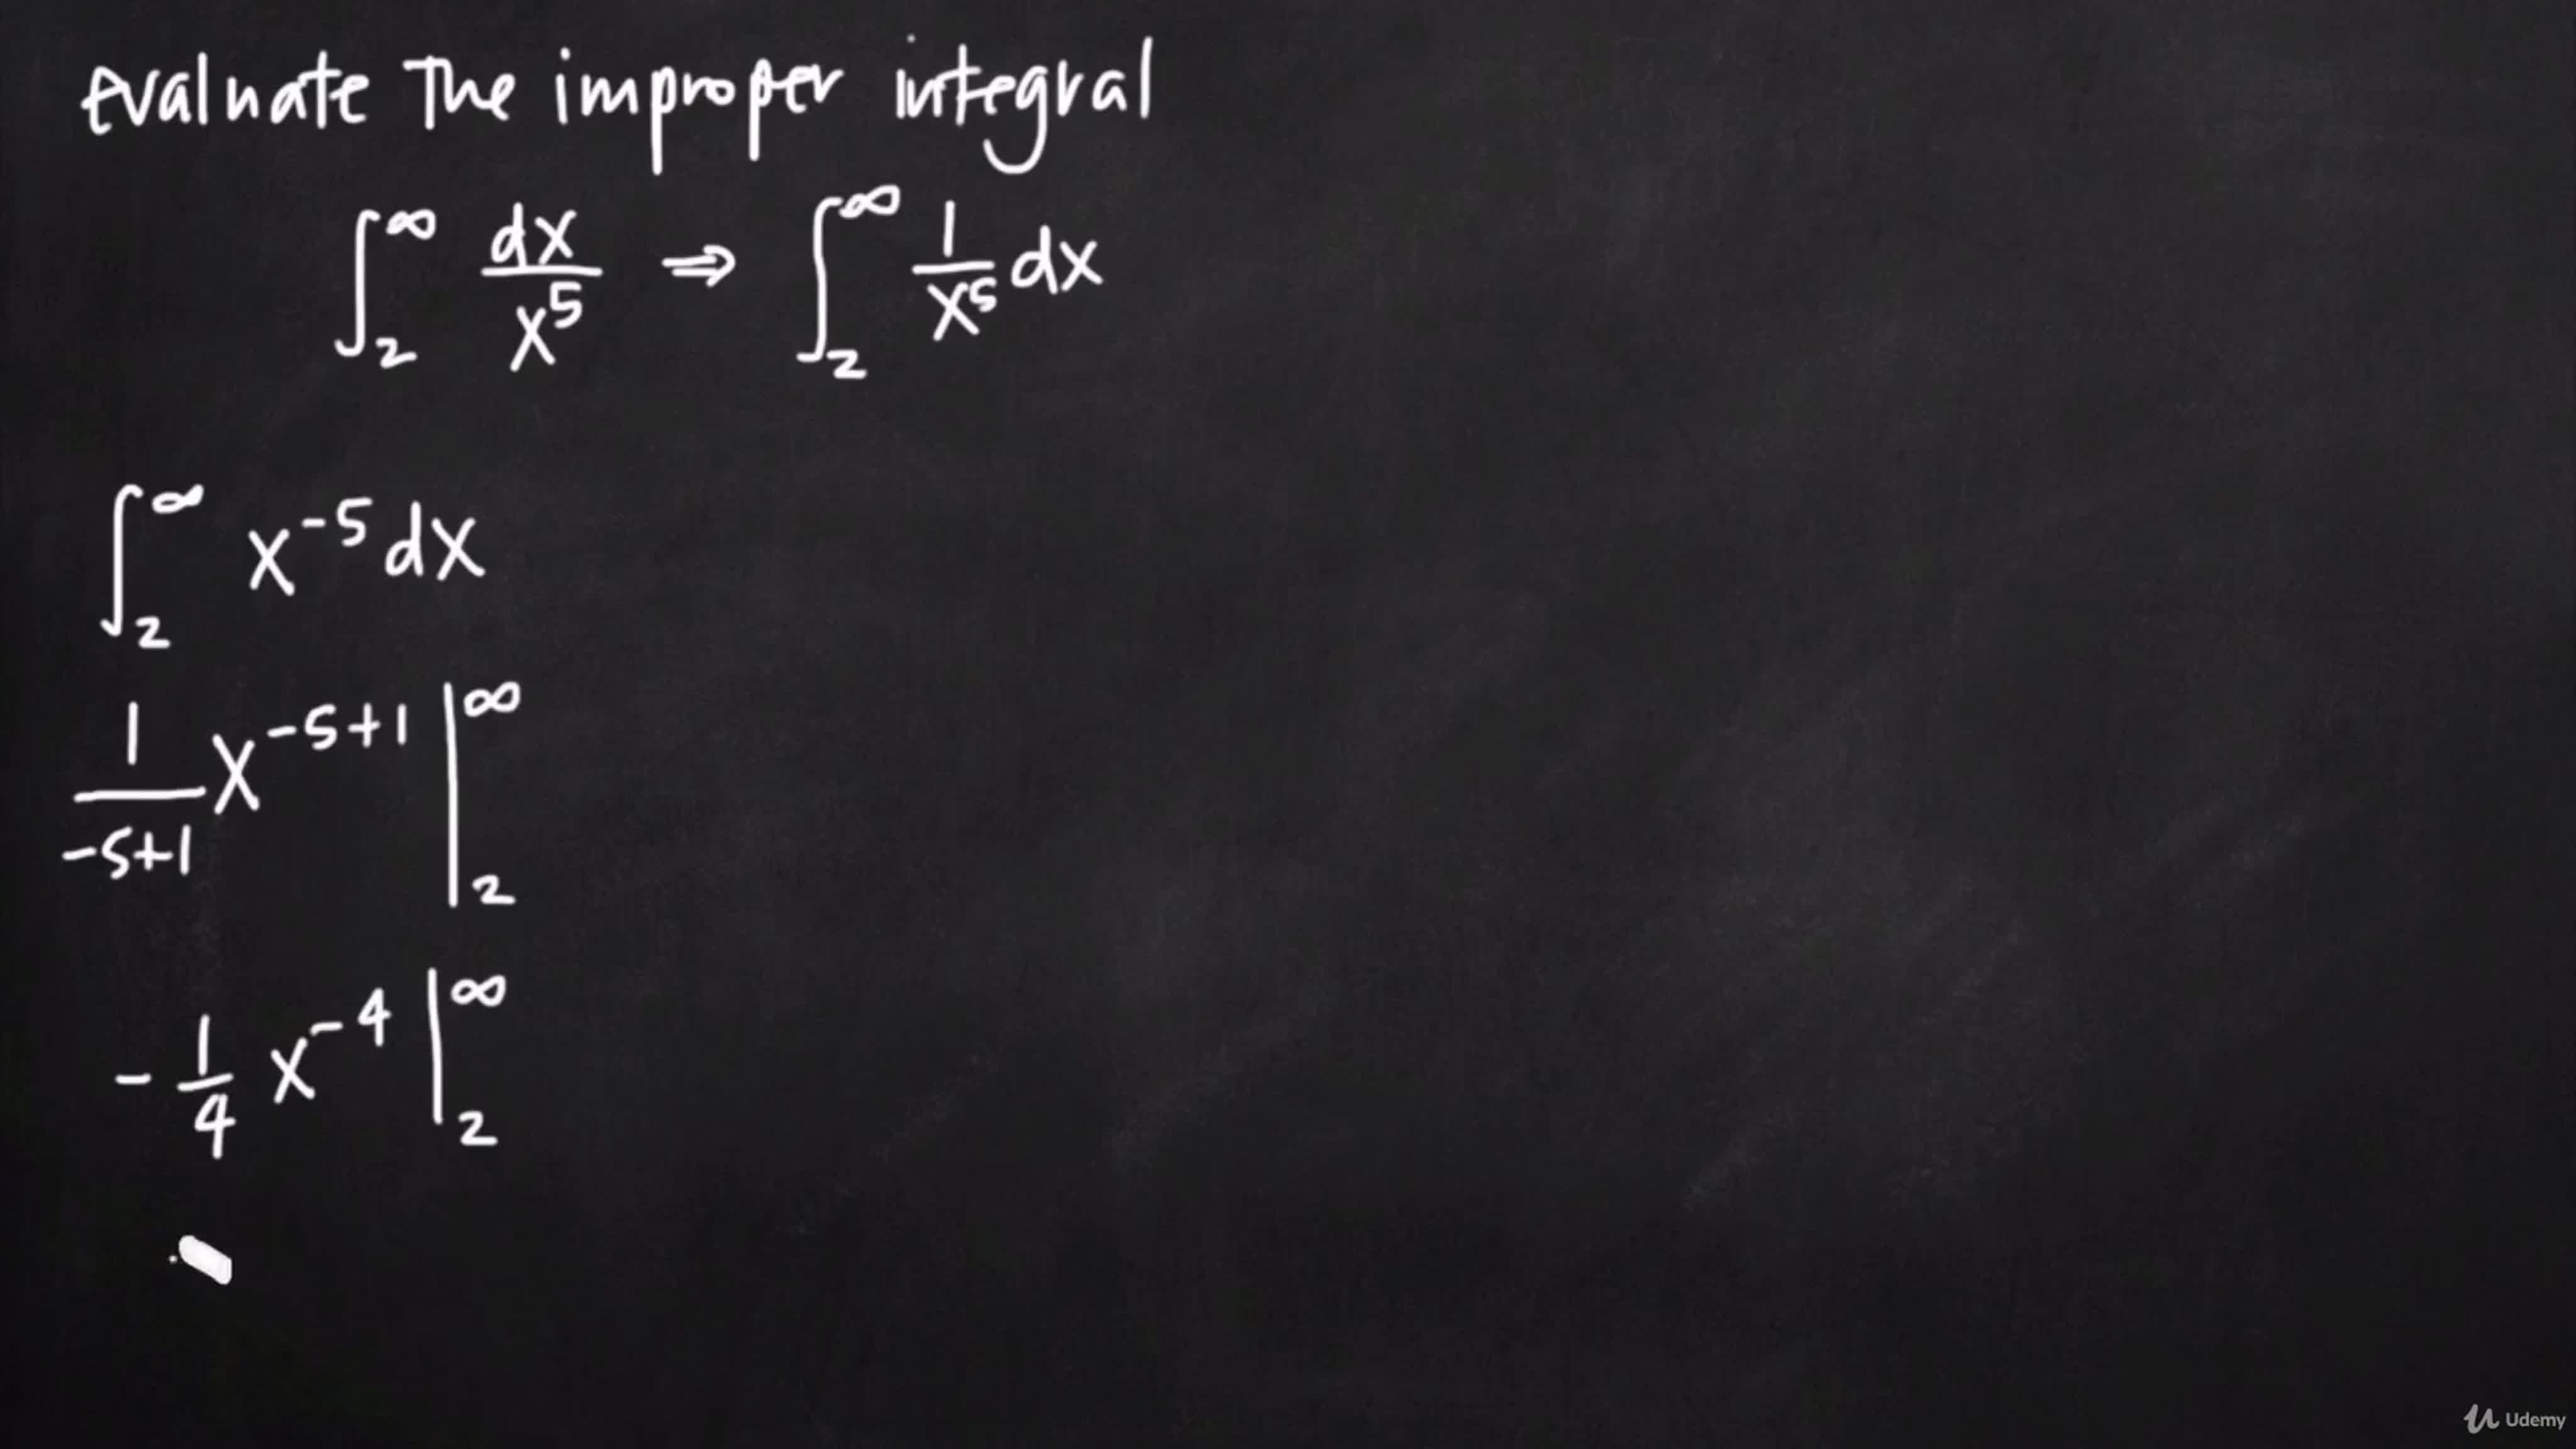 evaluate the improper integral
∫₂^∞ dx/x⁵ ⇒ ∫₂^∞ 1/x⁵ dx
∫₂^∞ x⁻⁵ dx
1/(-5+1) x^(-5+1) |₂^∞
- 1/4 x⁻⁴ |₂^∞
Udemy